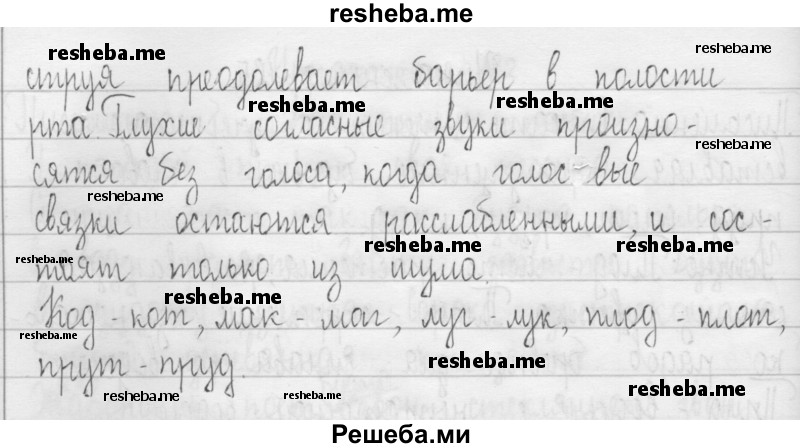 resheba.me
resheba.me resheba.me
струя преодолевает барьер в полости
resheba.me resheba.me
рта. Глухие согласные звуки произно-
resheba.me
сятся без голоса, когда голос-вые
resheba.me
связки остаются расслабленными, и сос-
resheba.me resheba.me resheba.me
тоят только из шума.
resheba.me
Код - кот, мак - маг, луг - лук, плод - плот,
resheba.me
прут - пруд.
resheba.me resheba.me resheba.me resheba.me
Решеба.ми